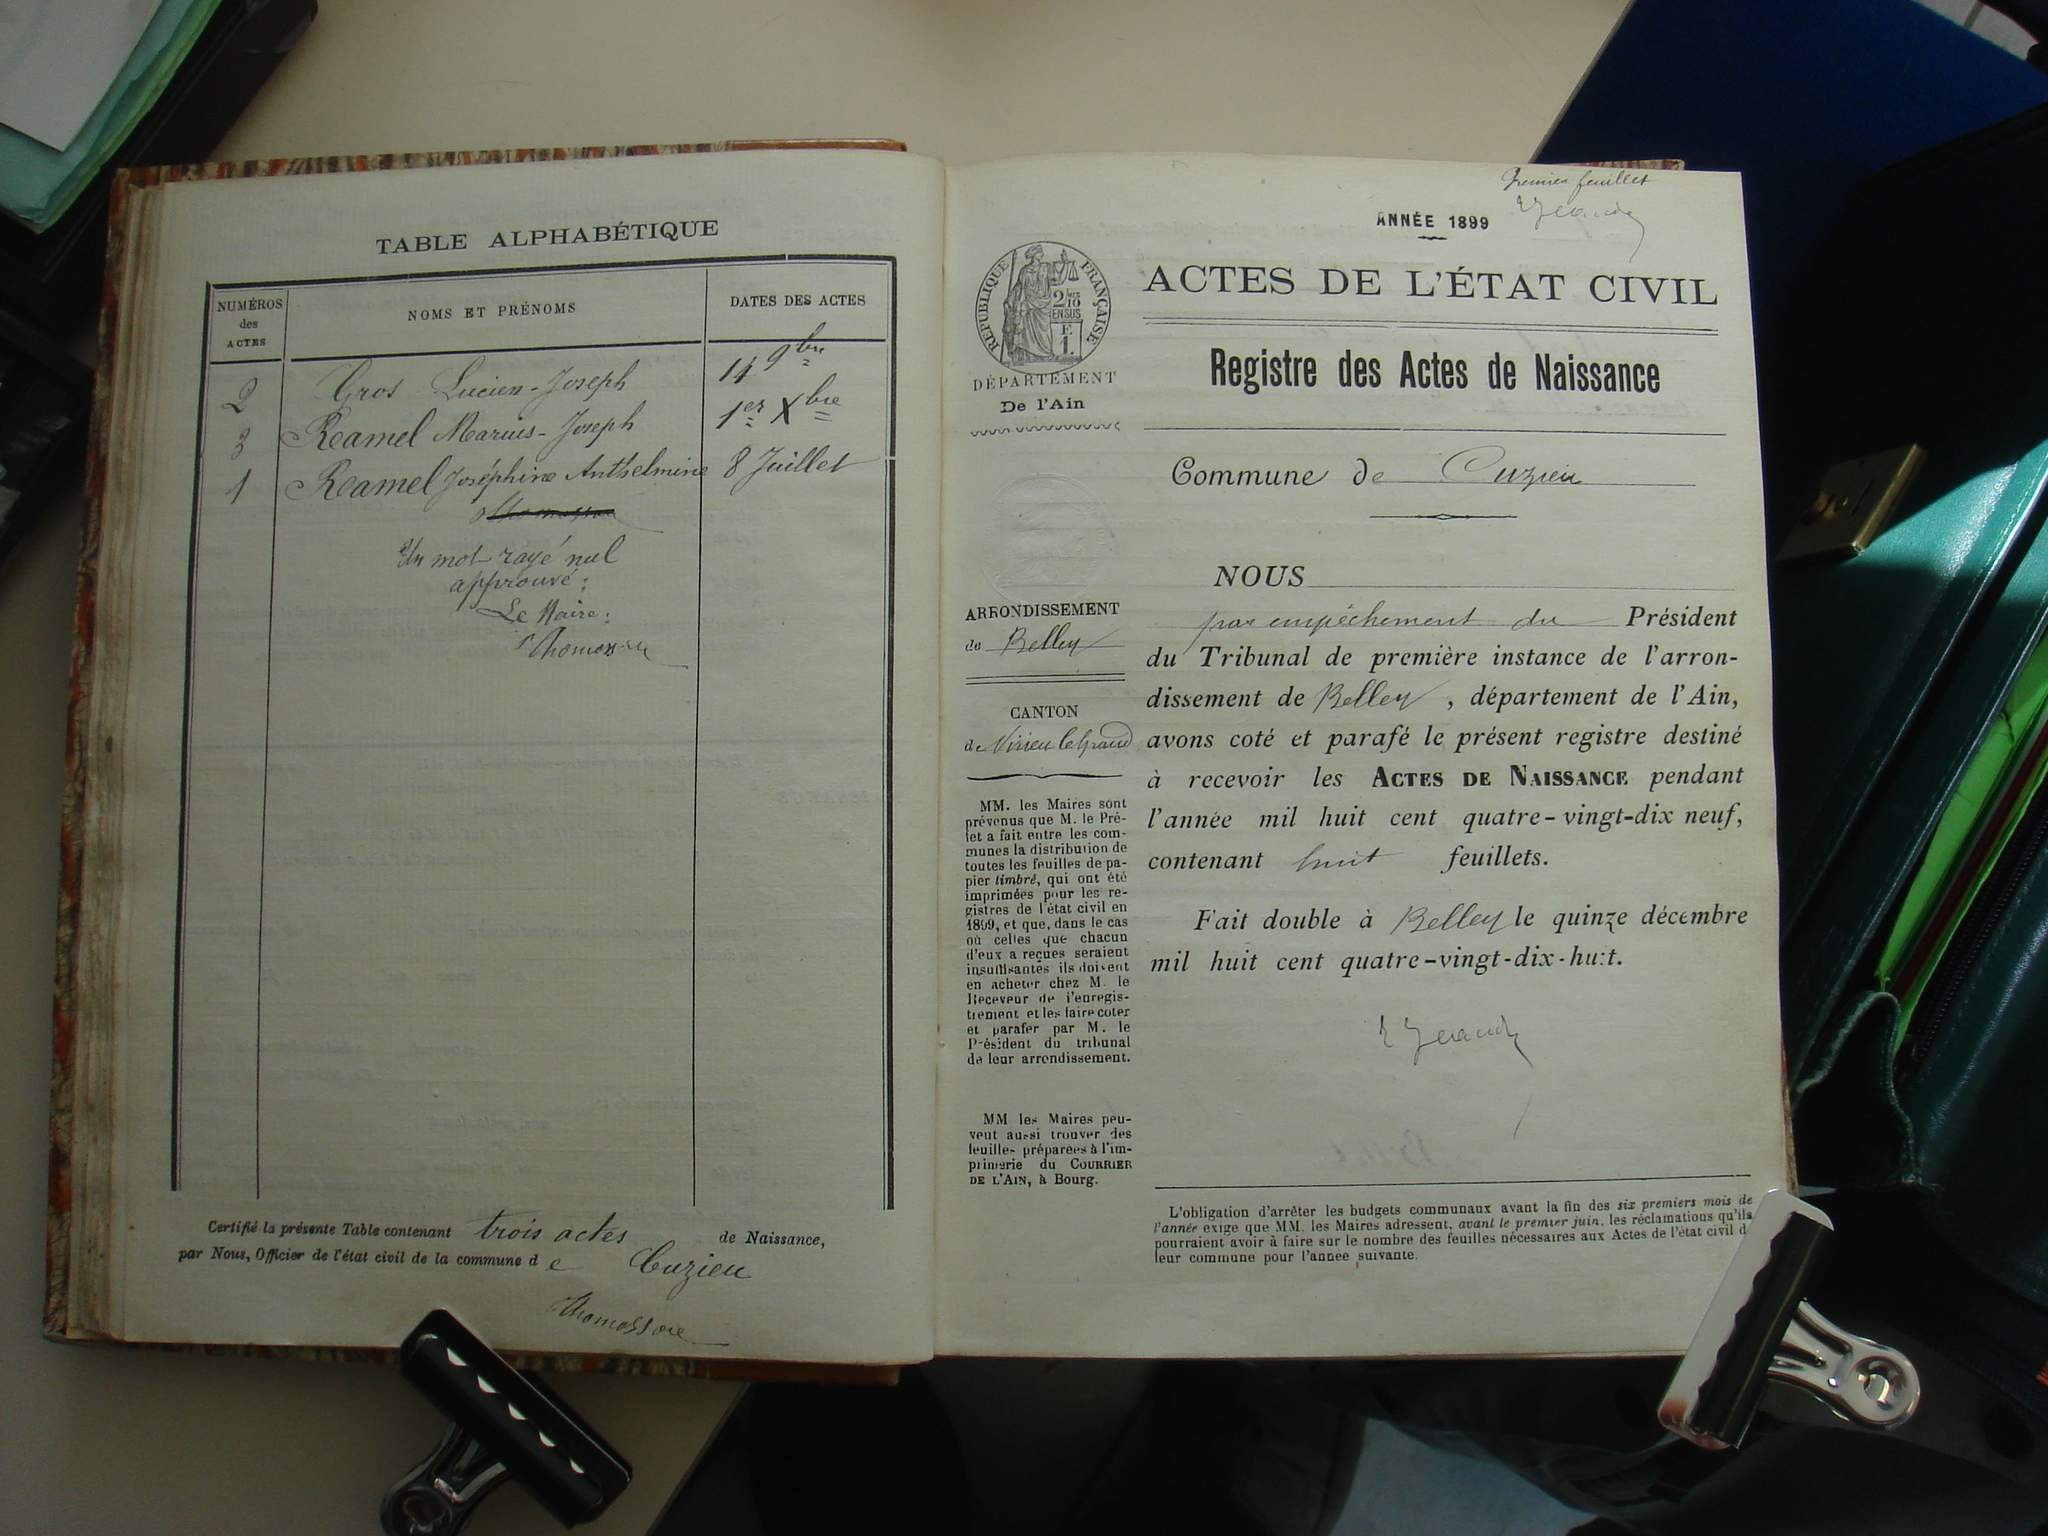 TABLE ALPHABÉTIQUE
NUMÉROS
des
ACTES
NOMS ET PRÉNOMS
DATES DES ACTES
2 Gros Lucien-Joseph 14 9bre
3 Reamel Marius-Joseph 1er Xbre
1 Reamel Joséphine Anthelmine 8 Juillet
Un mot rayé nul
approuvé:
Le Maire:
Certifié la présente Table contenant trois actes de Naissance,
par Nous, Officier de l'état civil de la commune de Cuzieu
Premier feuillet
ANNÉE 1899
RÉPUBLIQUE FRANÇAISE
DÉPARTEMENT
De l'Ain
ARRONDISSEMENT
de Belley
CANTON
de Virieu le Grand
MM. les Maires sont
prévenus que M. le Pré-
fet a fait entre les com-
munes la distribution de
toutes les feuilles de pa-
pier timbré, qui ont été
imprimées pour les re-
gistres de l'état civil en
1899, et que, dans le cas
où celles que chacun
d'eux a reçues seraient
insuffisantes ils doivent
en acheter chez M. le
Receveur de l'enregis-
trement et les faire coter
et parafer par M. le
Président du tribunal
de leur arrondissement.
MM les Maires peu-
vent aussi trouver des
feuilles préparees à l'im-
primerie du COURRIER
DE L'AIN, à Bourg.
ACTES DE L'ÉTAT CIVIL
Registre des Actes de Naissance
Commune de Cuzieu
NOUS
par empêchement du Président
du Tribunal de première instance de l'arron-
dissement de Belley, département de l'Ain,
avons coté et parafé le présent registre destiné
à recevoir les ACTES DE NAISSANCE pendant
l'année mil huit cent quatre-vingt-dix neuf,
contenant huit feuillets.
Fait double à Belley le quinze décembre
mil huit cent quatre-vingt-dix-huit.
L'obligation d'arrêter les budgets communaux avant la fin des six premiers mois de
l'année exige que MM. les Maires adressent, avant le premier juin, les réclamations qu'ils
pourraient avoir à faire sur le nombre des feuilles nécessaires aux Actes de l'état civil d
leur commune pour l'année suivante.